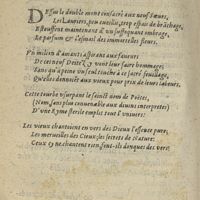 Dessus le double mont consacré aux neuf Sœurs,
Les Lauriers, peu cueillis, trop espais de branchage,
Estouffent maintenant d'un suffoquant ombrage,
Le parfum & l'esmail des immortelles fleurs.
Un milion d'amants aspirant aux faveurs
De ces neuf Deitez vont leur faire hommage:
Sans qu'à peine un seul touche à ce sacré feuillage,
Qu'elles donnent aux vieux pour prix de leurs labeurs.
Cette tourbe usurpant le sainct nom de Poëtes,
(Nom, sans plus convenable aux divins interpretes)
D'une Ryme sterile emplit tout l'univers:
Les vieux chantoient en vers des Dieux l'essence pure,
Les merveilles des Cieux, les secrets de Nature:
Ceux cy ne chantent rien, sont-ils dinques des vers